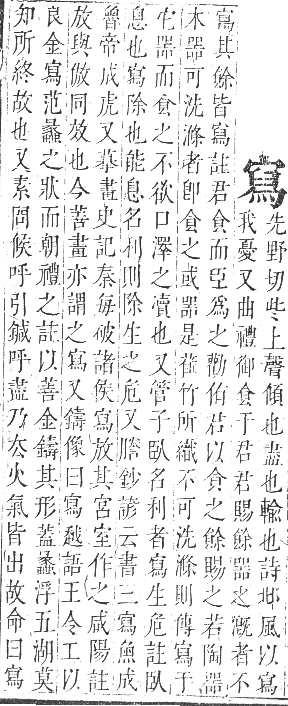 寫
先野切些上聲傾也盡也輸也詩邶風以寫
我憂又曲禮御食于君君賜餘器之漑者不
寫其餘皆寫註君食而臣爲之勸侑君以食之餘賜之若陶器
木器可洗滌者卽食之或器是萑竹所織不可洗滌則傳寫于
他器而食之不欲口澤之瀆也又管子臥名利者寫生危註臥
息也寫除也能息名利則除生之危又膽鈔諺云書三寫魚成
魯帝成虎又摹畫史記秦每破諸侯寫放其宮室作之咸陽註
放與倣同效也今善畫亦謂之寫又鑄像曰寫越語王令工以
良金寫范蠡之狀而朝禮之註以善金鑄其形蓋蠡浮五湖莫
知所終故也又素問候呼引鍼呼盡乃去火氣皆出故命曰寫